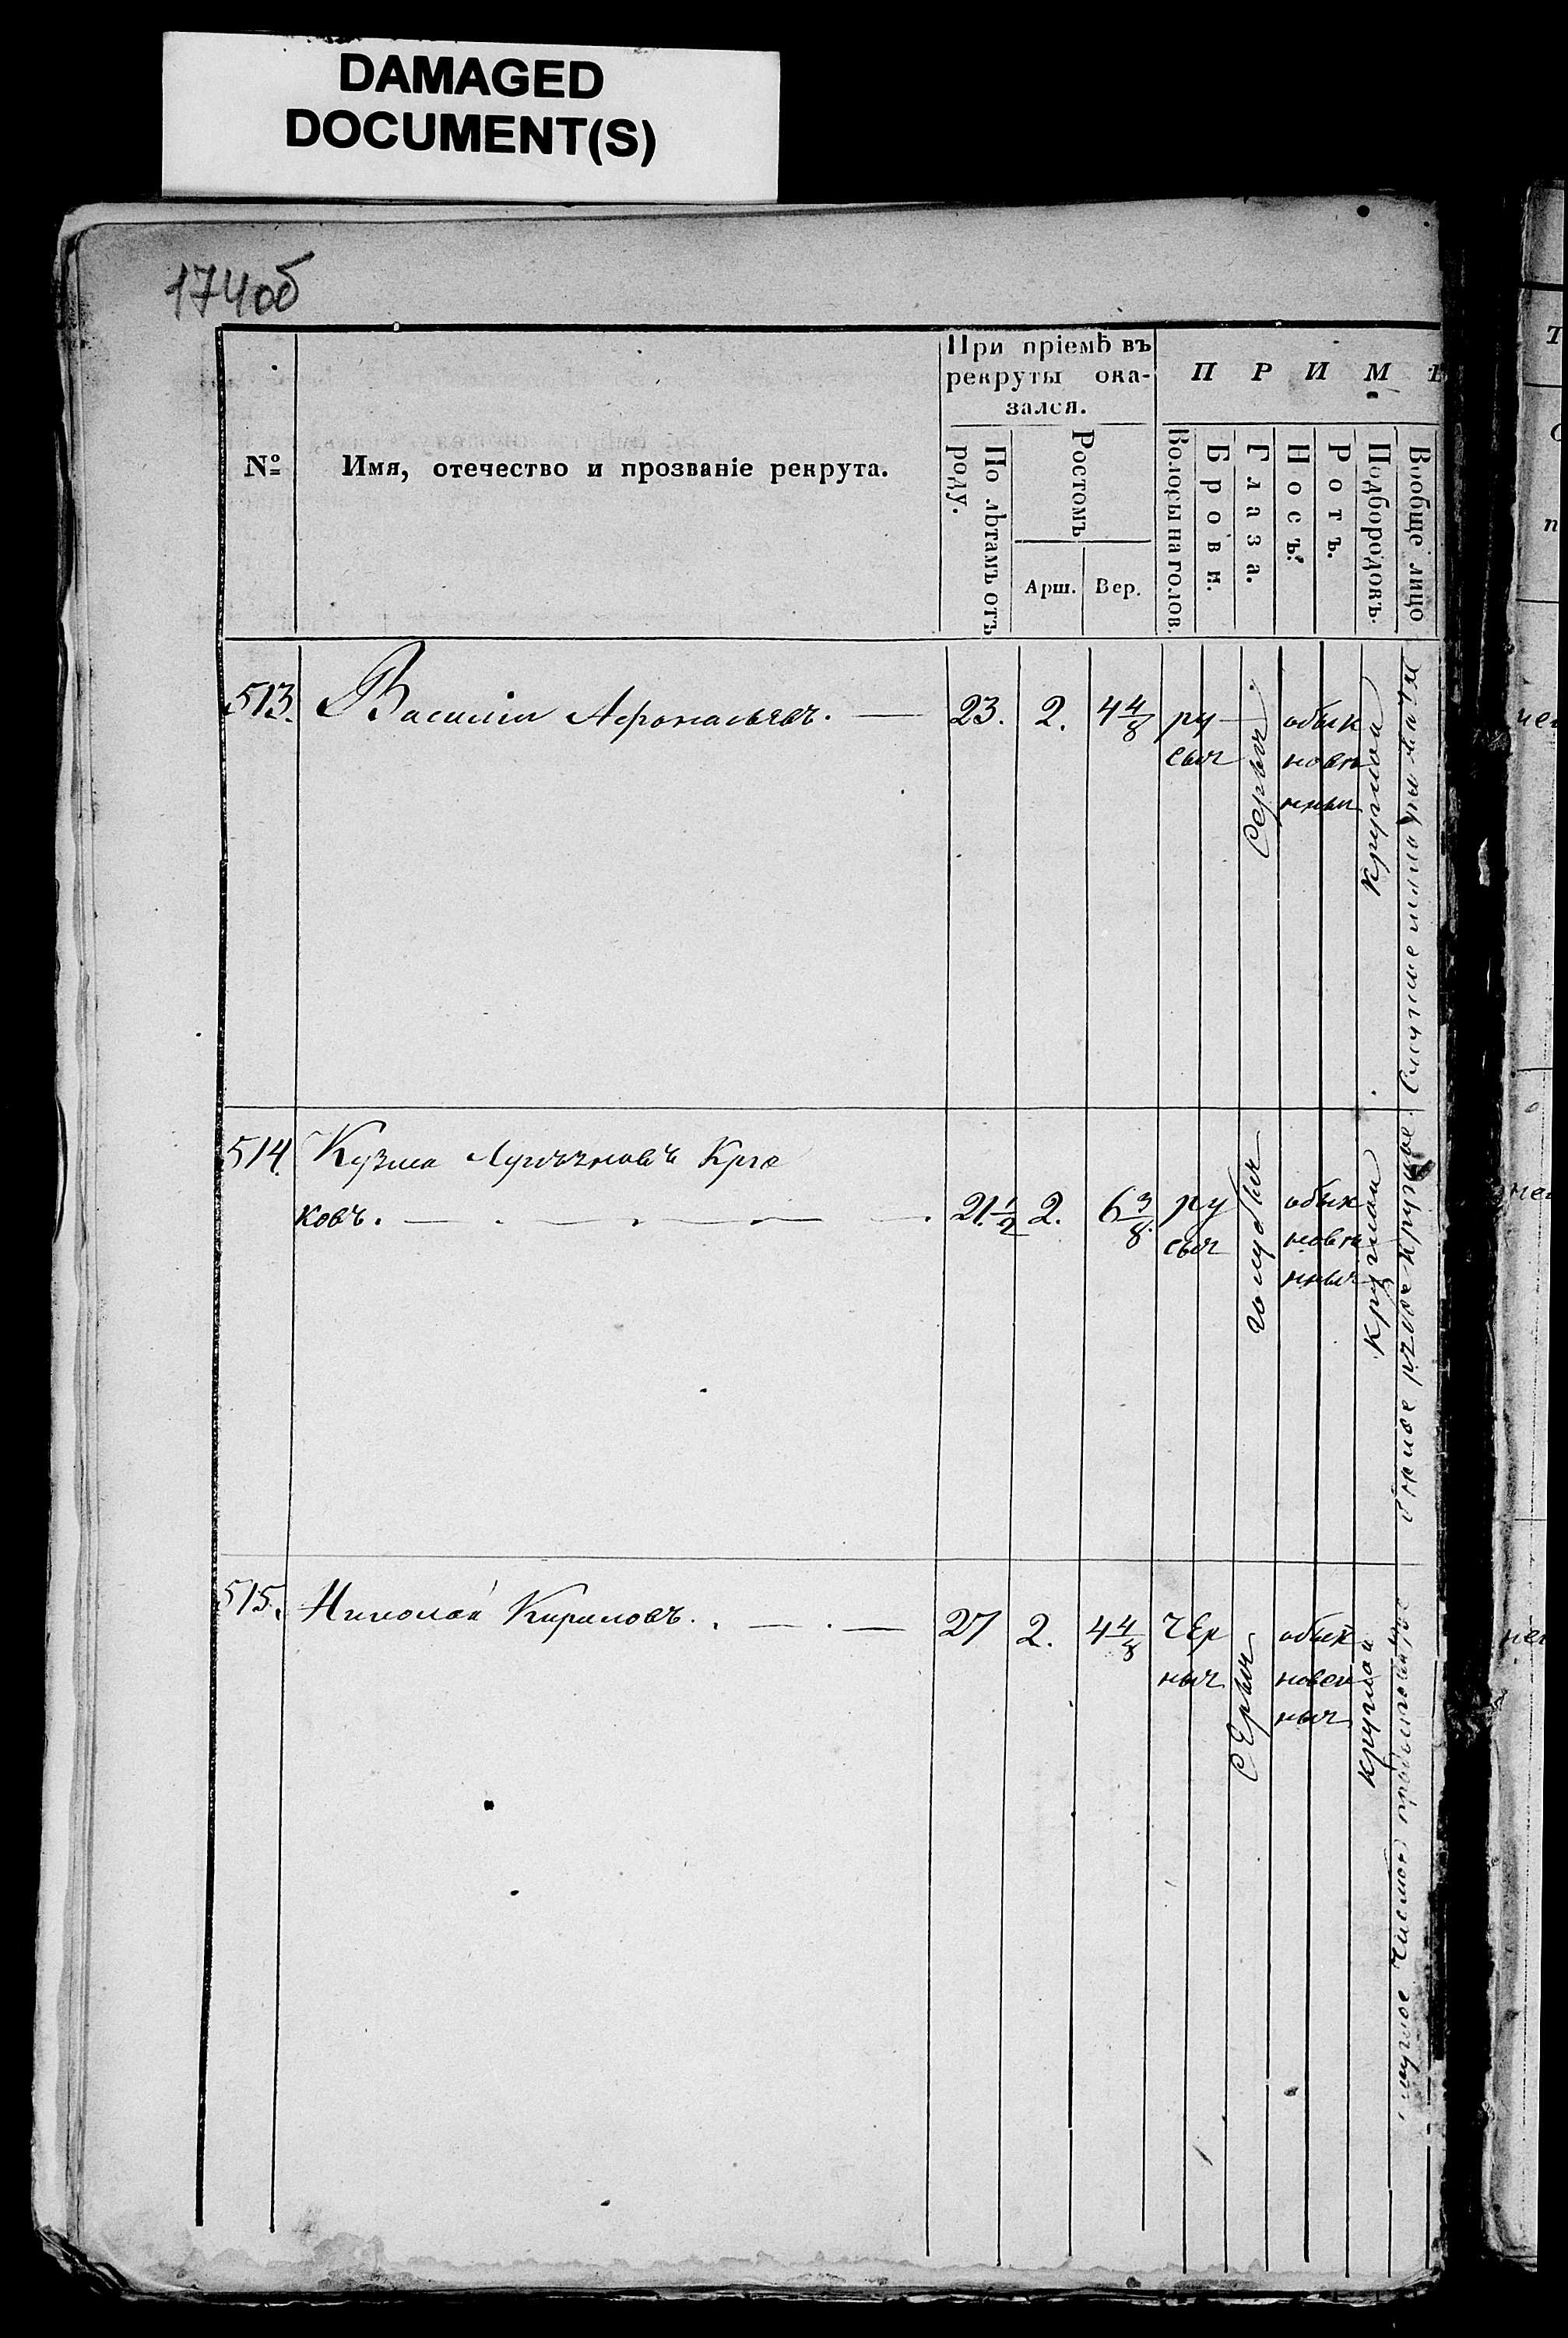 DAMAGED
DOCUMENT(S)
174об
№
Имя, отечество и прозваніе рекрута.
При пріемѣ въ
рекруты ока-
зался.
По лѣтамъ отъ
роду.
Ростомъ
Арш.
Вер.
П Р И М
Волосы на голов.
Брови.
Глаза.
Носъ.
Ротъ.
Подбородокъ.
Вообще лицо
513. Василій Афонасьевъ. — 23. 2. 4 4/8 ру
сыя
Серыя
обык
нове
нныи
круглой
514. Кузма
ковъ. — 21 1/2 2. 6 3/8 ру
сыя
голубыя
обык
нове
нныя
круглой
круглое
515. Николай Кириловъ. — 27 2. 4 4/8 чер
ныя
Серыя
обык
новен
ныя
круглой
чистое